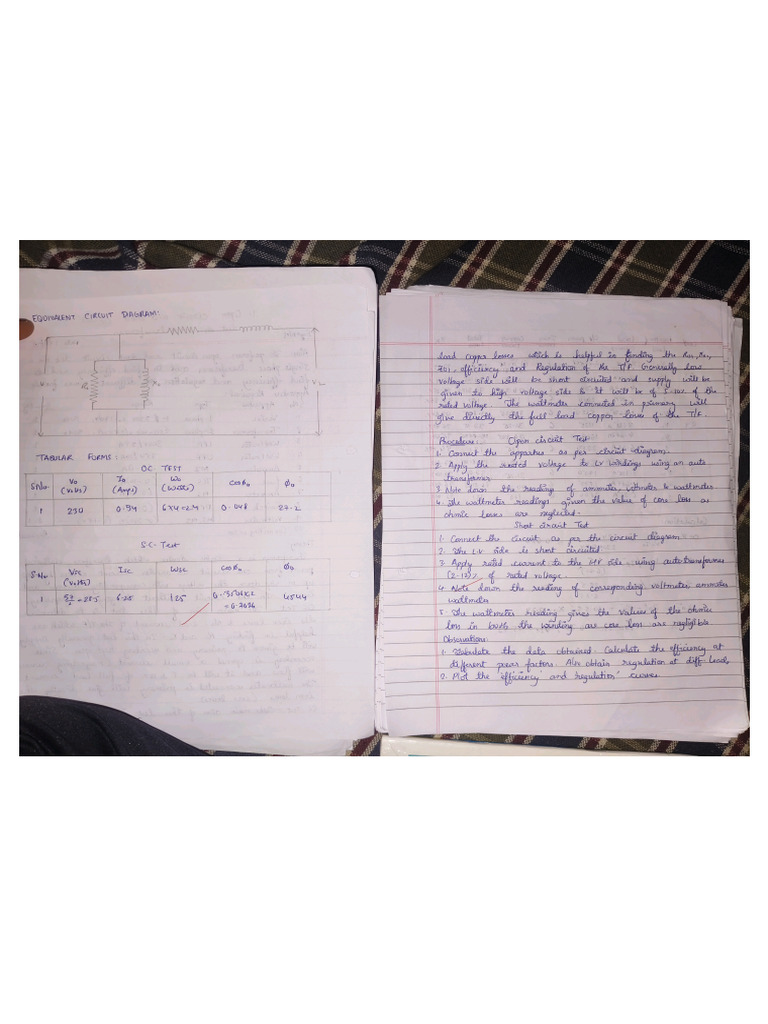 EQUIVALENT CIRCUIT DIAGRAM:
V₂
TABULAR FORMS
OC TEST
S.No. V₀ (Volts) I₀ (Amps) W₀ (Watts) cosϕ₀ ϕ₀
1 230 6×4=24
S.C. Test
S.No. Vsc (Volts) Isc Wsc cosϕ₀ ϕ₀
1 6.25 125
load copper losses which is helpful in finding the
efficiency and Regulation of the T/F. Generally low
voltage side will be short circuited and supply will be
given to high voltage side & it will be of 5-10% of the
rated voltage. The wattmeter connected in primary will
give directly the full load copper losses of the T/F.
Procedure: Open circuit Test
1. Connect the apparatus as per circuit diagram.
2. Apply the rated voltage to LV windings using an auto
transformer
3. Note down the reading of ammeter, voltmeter & wattmeter
4. The wattmeter readings given the value of core loss as
ohmic losses are neglected.
Short circuit Test
1. Connect the circuit as per the circuit diagram
2. The L.V side is short circuited
3. Apply rated current to the HV side using auto-transformer
(2-12)% of rated voltage.
4. Note down the reading of corresponding voltmeter ammeter
wattmeter
5. The wattmeter reading gives the values of the ohmic
loss in both the winding as core loss are negligible
Observations:
1. Tabulate the data obtained. Calculate the efficiency at
different power factors. Also obtain regulation at diff. Load,
2. Plot the "efficiency and regulation" curves